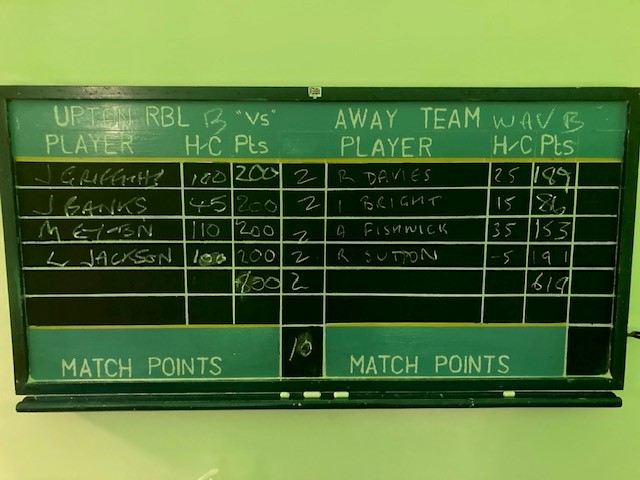 UPTON RBL B "Vs" AWAY TEAM WAV B
PLAYER H/C Pts PLAYER H/C Pts
J GRIFFITHS 100 200 2 R DAVIES 25 189
J BANKS 45 200 2 I BRIGHT 15 86
M 110 200 2 A FISHWICK 35 153
L JACKSON 100 200 2 R SUTTON -5 191
800 2 619
10
MATCH POINTS MATCH POINTS